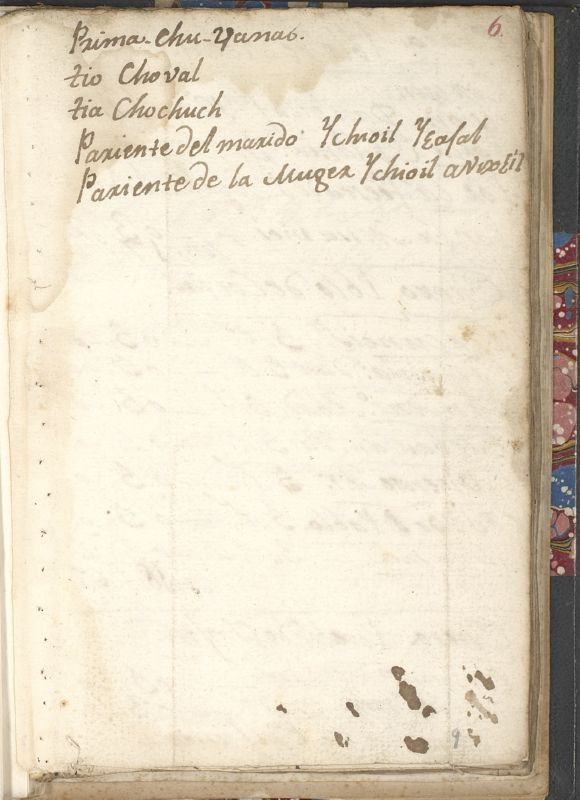 6.
Prima - Chu - Yanab.
tio Choval
tia Chochuch
Pariente del marido Ychioil
Pariente de la Muger Ychioil
9